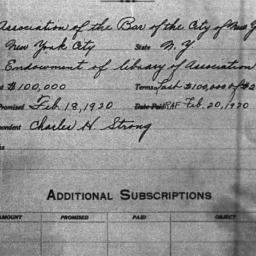 Association of the Bar of the City of New Y
New York City State N. Y.
Endowment of library of Association
$100,000 Terms Last $100,000 of $2
Promised Feb. 18, 1920 Date Paid RAF Feb. 20, 1920
pondent Charles H. Strong
ks
ADDITIONAL SUBSCRIPTIONS
AMOUNT PROMISED PAID OBJECT